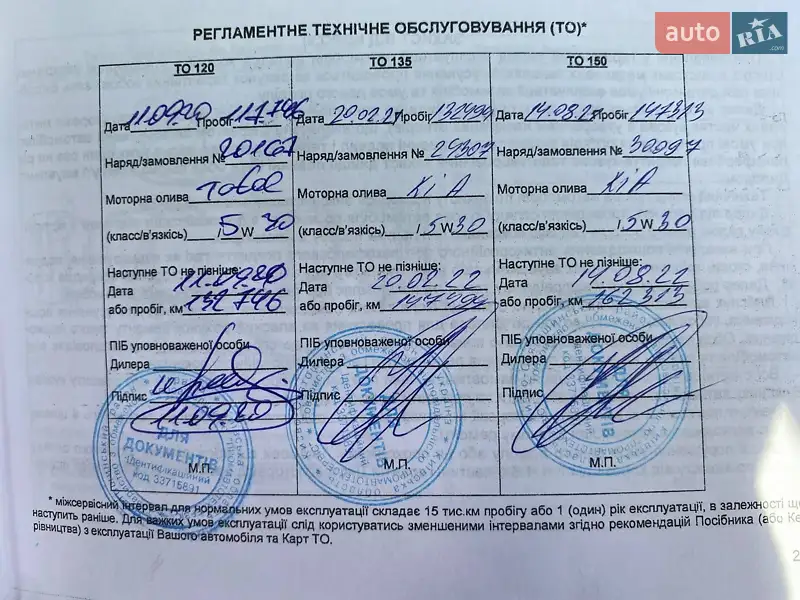 auto RIA.com
РЕГЛАМЕНТНЕ ТЕХНІЧНЕ ОБСЛУГОВУВАННЯ (ТО)*
ТО 120
Дата 11.09.20 Пробіг 117.746
Наряд/замовлення № 20167
Моторна олива Total
(класс/в'язкість) / 5 W 30
Наступне ТО не пізніше:
Дата
або пробіг, км 132746
ПІБ уповноваженої особи
Дилера
Підпис
11.09.20
ДЛЯ
ДОКУМЕНТІВ
Ідентифікаційний
код 33715891
М.П.
ТО 135
Дата 20.02.21 Пробіг 132494
Наряд/замовлення № 24307
Моторна олива KіА
(класс/в'язкість) / 5 W 30
Наступне ТО не пізніше:
Дата 20.02.22
або пробіг, км 147494
ПІБ уповноваженої особи
Дилера
Підпис
М.П.
ТО 150
Дата 14.08.21 Пробіг 147313
Наряд/замовлення № 30097
Моторна олива KіА
(класс/в'язкість) / 5 W 30
Наступне ТО не пізніше:
Дата 14.08.22
або пробіг, км 162313
ПІБ уповноваженої особи
Дилера
Підпис
М.П.
* міжсервісний інтервал для нормальних умов експлуатації складає 15 тис.км пробігу або 1 (один) рік експлуатації, в залежності
наступить раніше. Для важких умов експлуатації слід користуватись зменшеними інтервалами згідно рекомендацій Посібника (або
рівництва) з експлуатації Вашого автомобіля та Карт ТО.